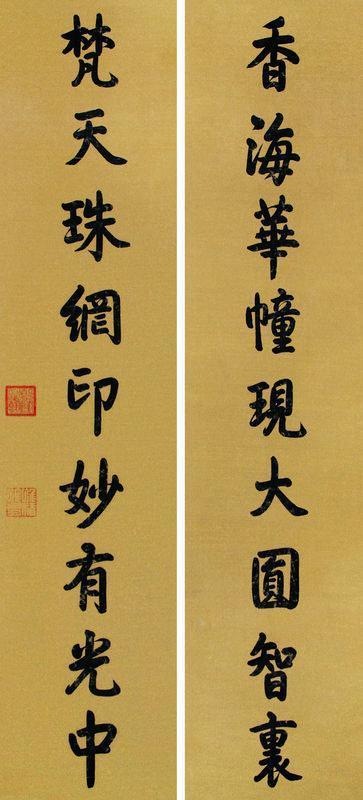 香海華幢現大圓智裏
梵天珠網印妙有光中